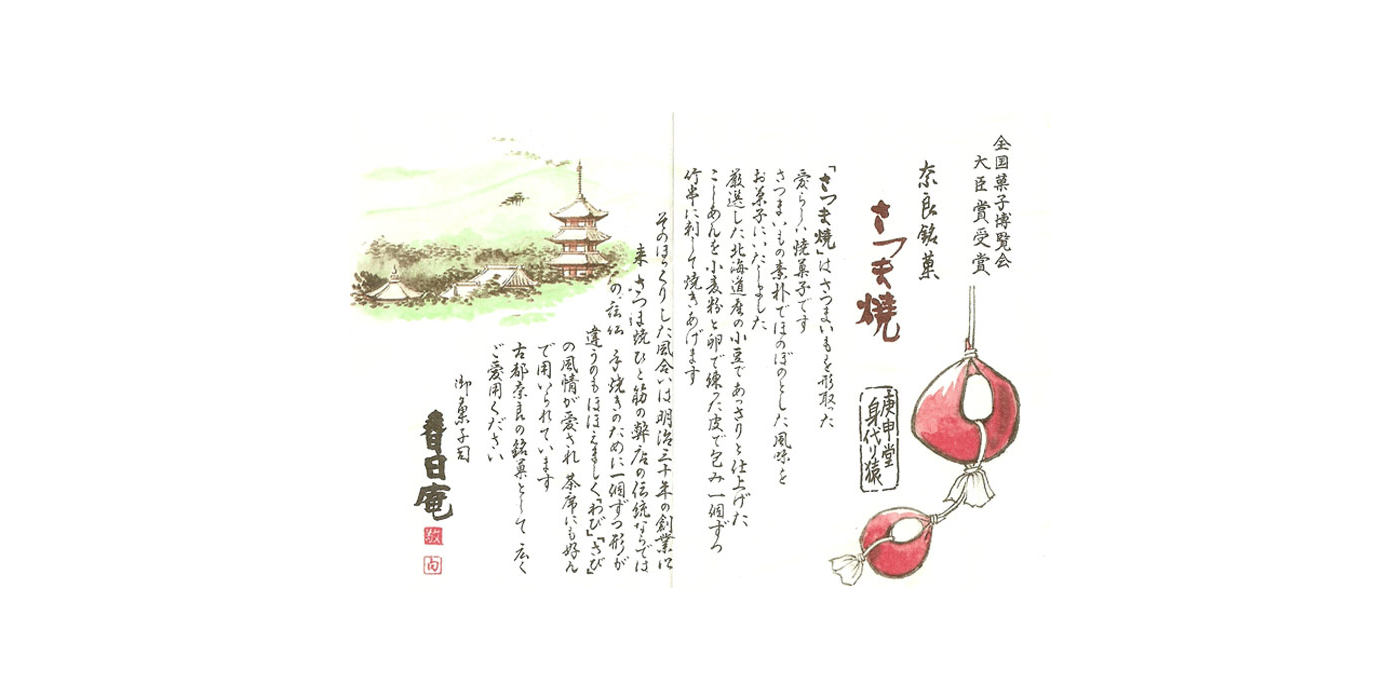 全国菓子博覧会
大臣賞受賞
奈良銘菓
さつま焼
庚申堂
身代り猿
「さつま焼」はさつまいもを形取った
愛らしい焼菓子です
さつまいもの素朴でほのぼのとした風味を
お菓子にいたしました
厳選した北海道産の小豆であっさりと仕上げた
こしあんを小麦粉と卵で練った皮で包み一個ずつ
竹串に刺して焼きあげます
そのほっくりした風合いは明治三十年の創業以
来さつま焼ひと筋の弊店の伝統ならでは
の 手焼きのために一個ずつ形が
違うのもほほえましく「わび」「さび」
の風情が愛され 茶席にも好ん
で用いられています
古都奈良の銘菓として広く
ご愛用ください
御菓子司
春日庵